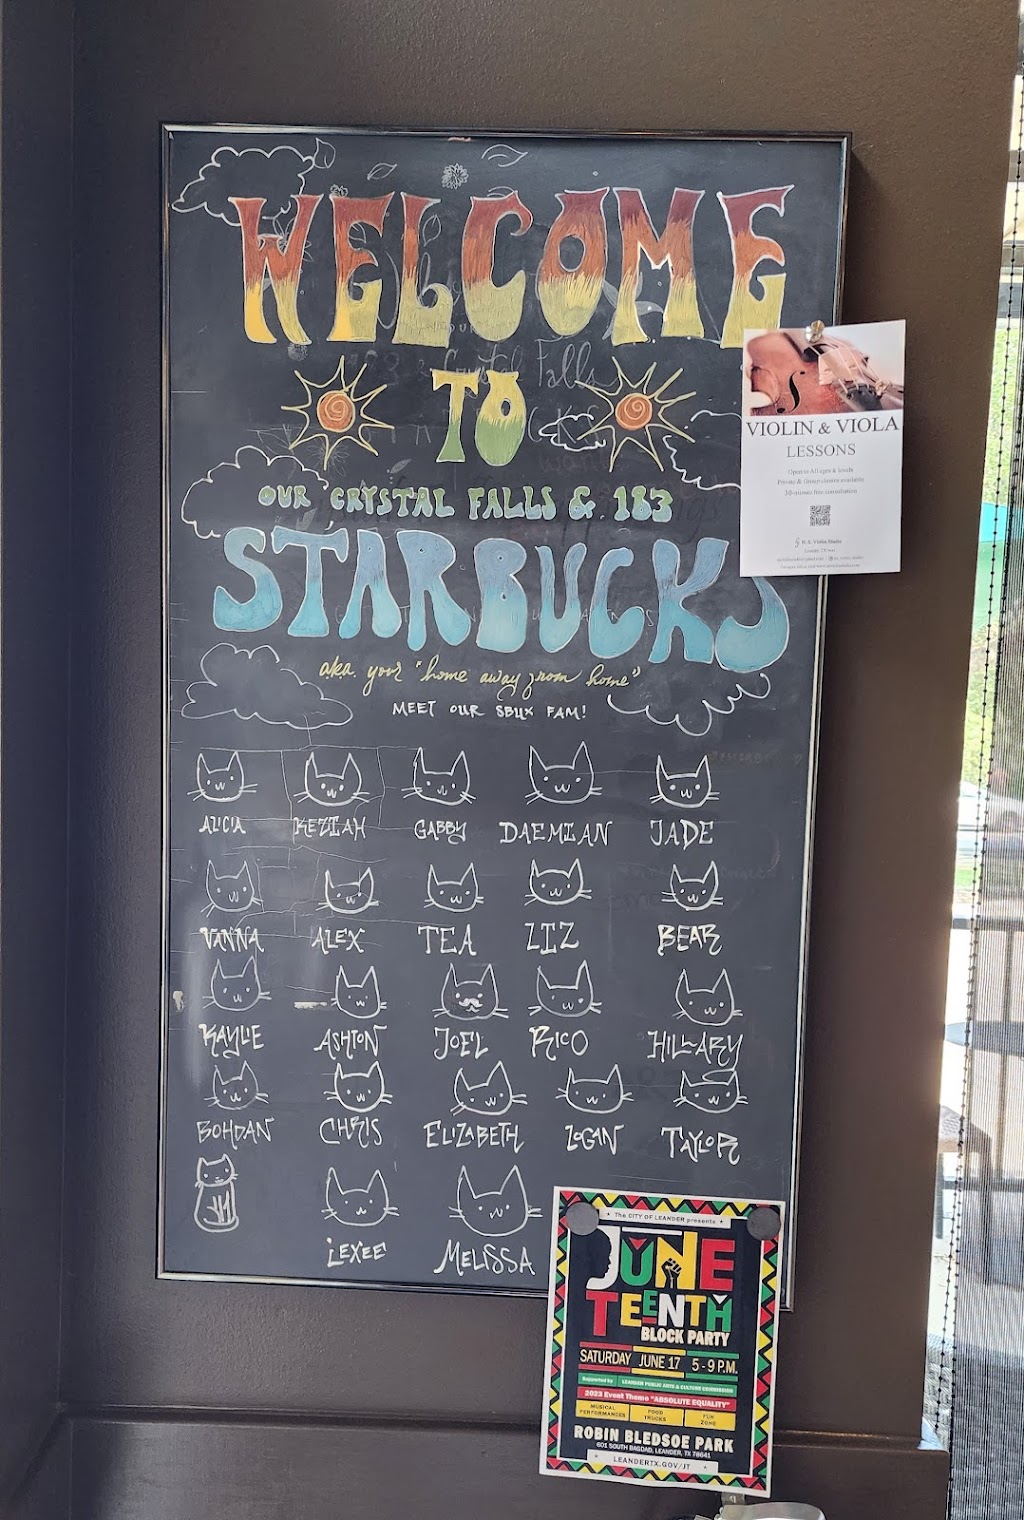 WELCOME
TO
OUR CRYSTAL FALLS & 183
STARBUCKS
aka. your "home away from home"
MEET OUR SBUX FAM!
ALICIA KEZIAH GABBY DAEMIAN JADE
VANNA ALEX TEA LIZ BEAR
KAYLIE ASHTON JOEL RICO HILLARY
BOHDAN CHRIS ELIZABETH LOGAN TAYLOR
LEXEE MELISSA
VIOLIN & VIOLA
LESSONS
Open to All ages & levels
Private & Group classes available
30-minute free consultation
Violin Studio
The CITY OF LEANDER presents
JUNE
TEENTH
BLOCK PARTY
SATURDAY JUNE 17 5 - 9 P.M.
Supported by LEANDER PUBLIC ARTS & CULTURE COMMISSION
2023 Event Theme "ABSOLUTE EQUALITY"
MUSICAL PERFORMANCES FOOD TRUCKS FUN ZONE
ROBIN BLEDSOE PARK
601 SOUTH BAGDAD, LEANDER, TX 78641
LEANDERTX.GOV/JT